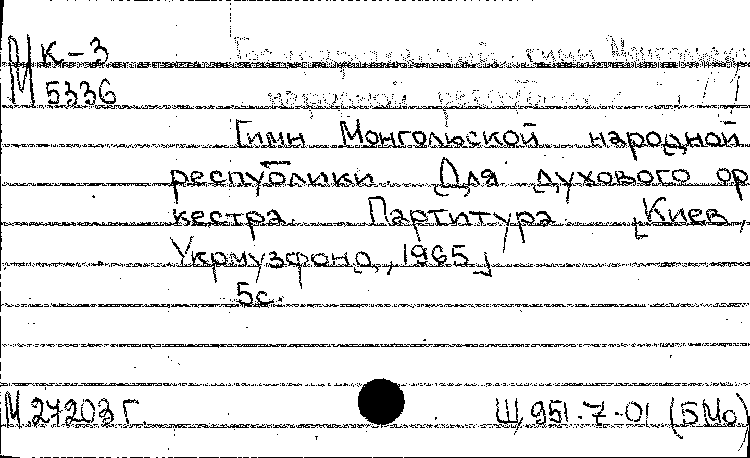 М К-3 Государственный гимн Монгольской
5336 народной республики
Гимн Монгольской народной
республики. Для духового ор
кестра. Партитура. [Киев,
Укрмузфонд, 1965]
5с.
М 27203 Г. Щ 951.7-01 (5Мо)